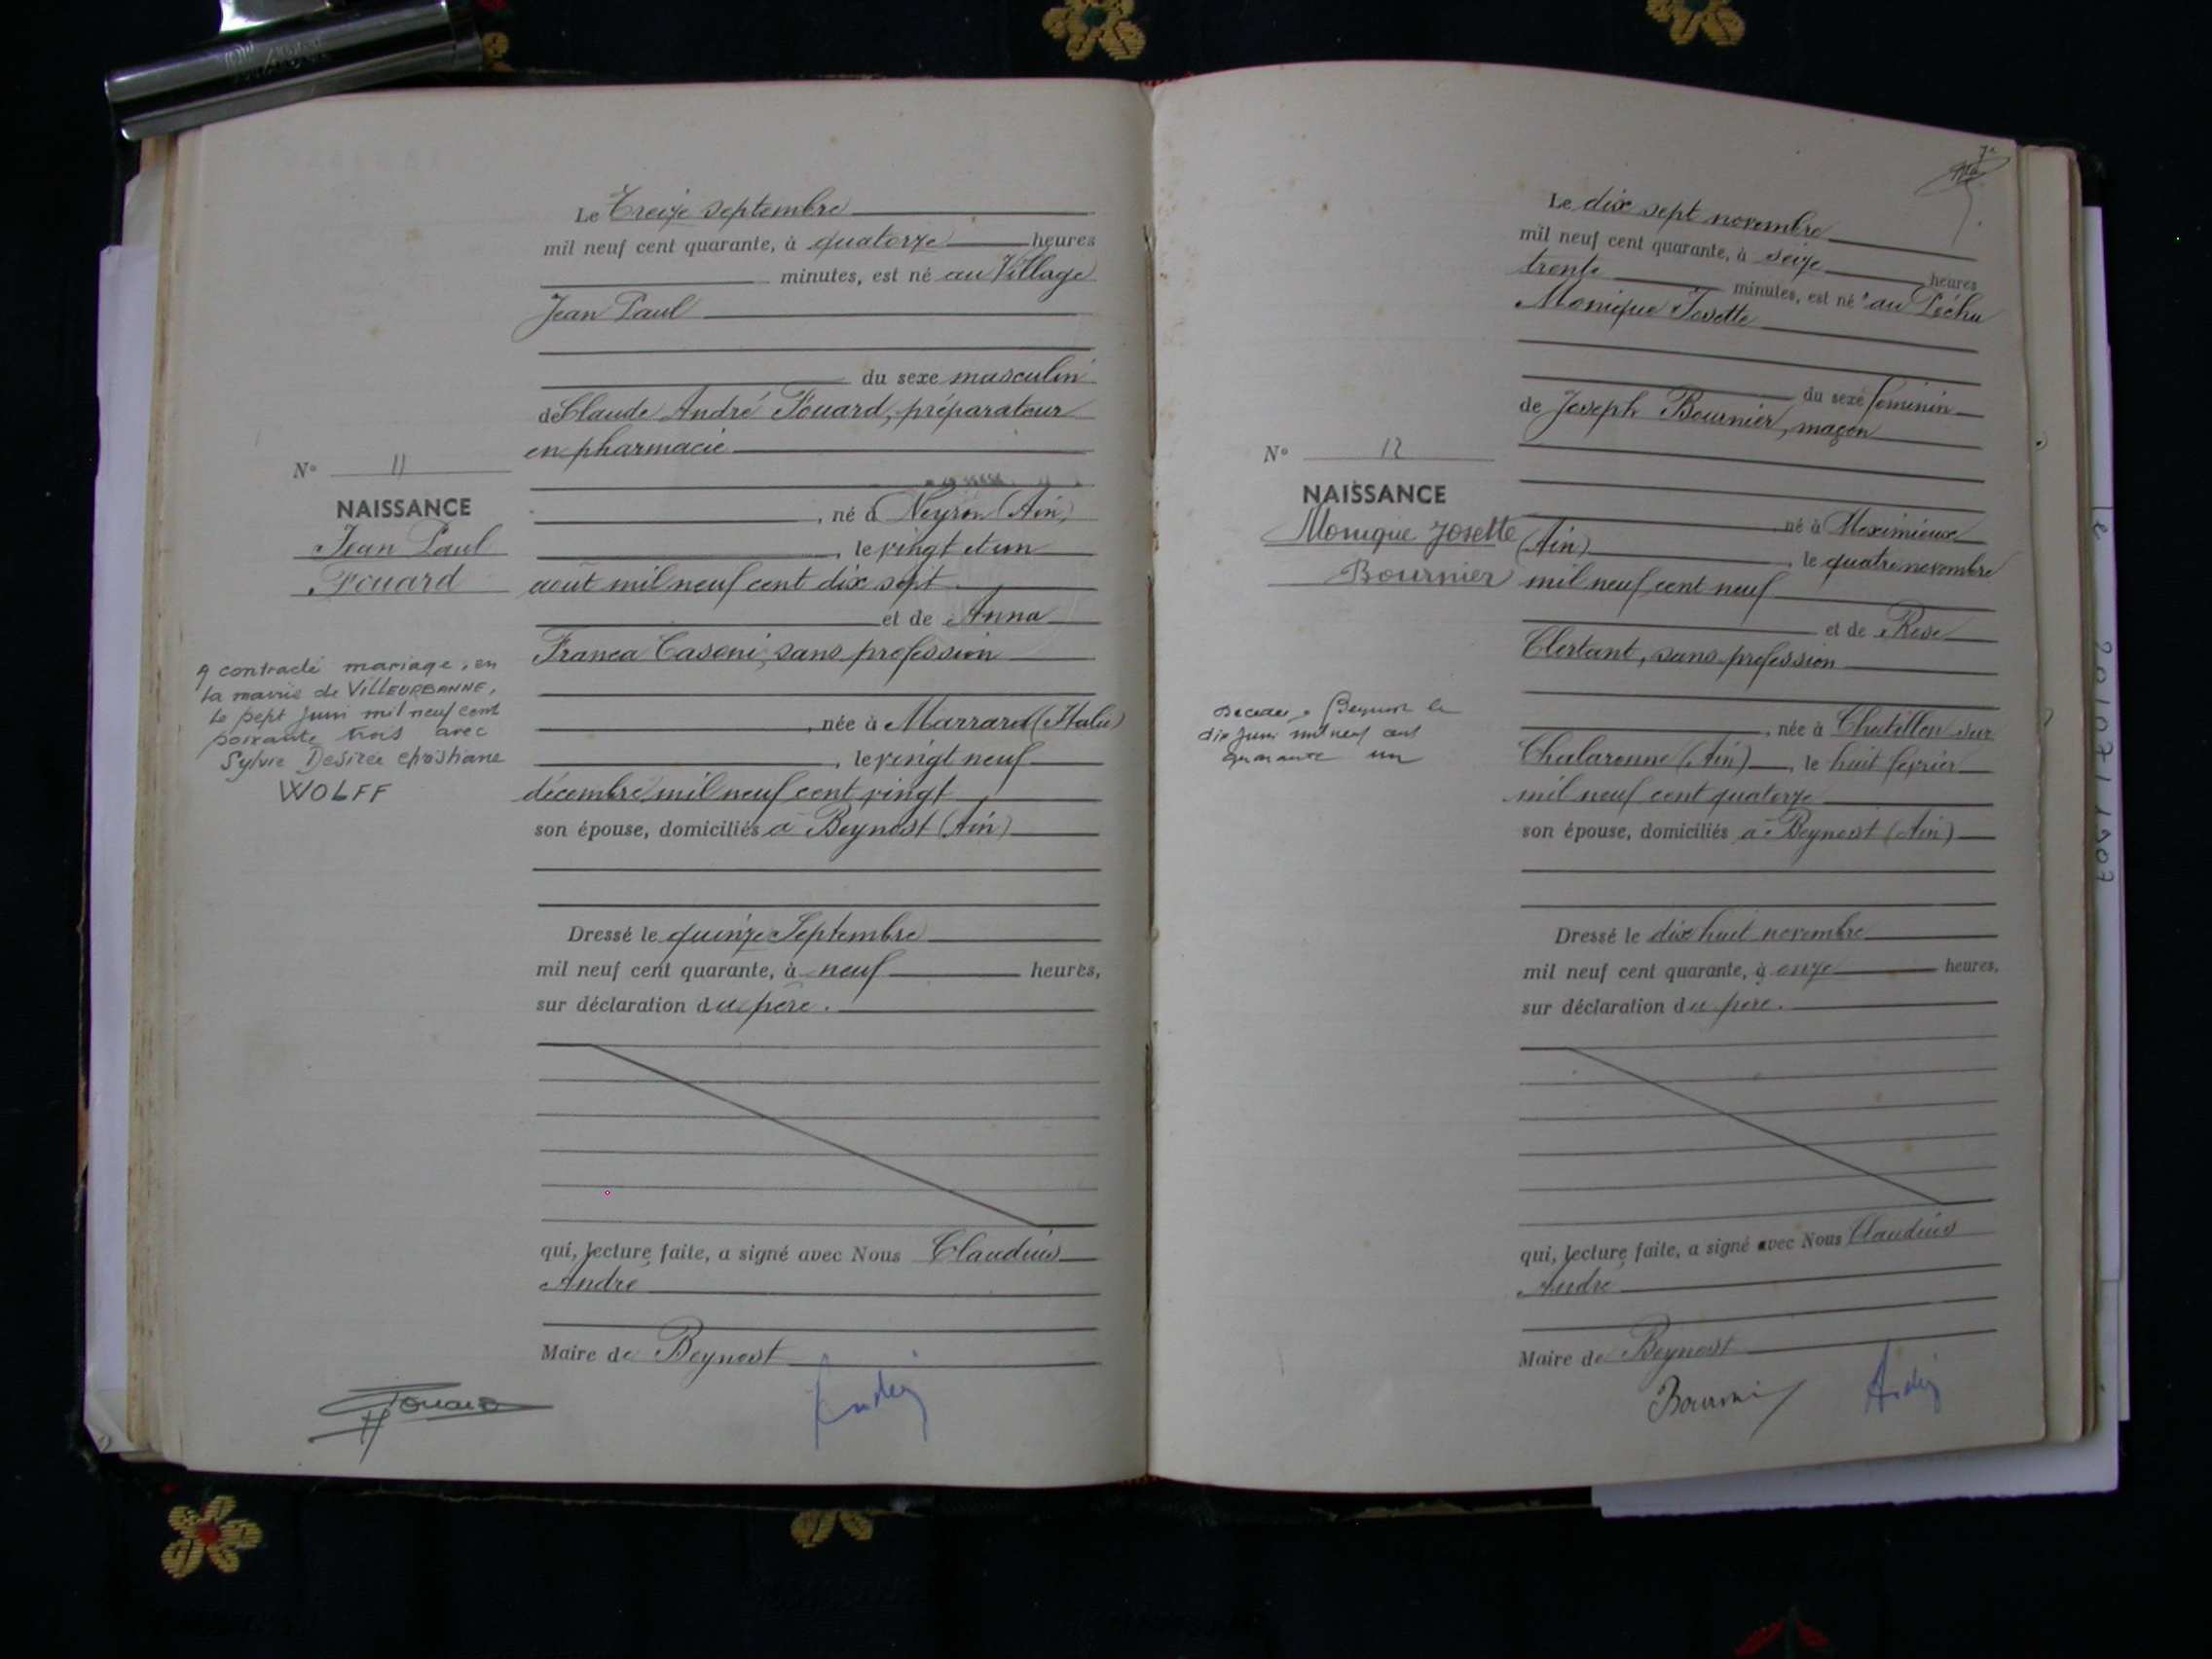 Le Treize septembre
mil neuf cent quarante, à quatorze heures
minutes, est né au Village
Jean Paul
du sexe masculin
de Claude André Fouard, préparateur
en pharmacie
né à Neyron (Ain)
, le vingt et un
août mil neuf cent dix sept
et de Anna
Franca Casoni, sans profession
, née à (Italie)
, le vingt neuf
décembre mil neuf cent vingt
son épouse, domiciliés à Beynost (Ain)
Dressé le quinze Septembre
mil neuf cent quarante, à neuf heures,
sur déclaration du père.
qui, lecture faite, a signé avec Nous Claudius
André
Maire de Beynost
N° 11
NAISSANCE
Jean Paul
Fouard
A contracté mariage, en
la mairie de VILLEURBANNE,
le sept Juin mil neuf cent
soixante trois avec
Sylvie Désirée Christiane
WOLFF
Fouard
Le dix sept novembre
mil neuf cent quarante, à seize heures
trente minutes, est né au Péchu
Monique Josette
du sexe feminin
de Joseph Bournier, maçon
né à Meximieux
(Ain), le quatre novembre
mil neuf cent neuf
et de Rose
Clertant, sans profession
, née à Chatillon sur
Chalaronne (Ain), le huit février
mil neuf cent quatorze
son épouse, domiciliés à Beynost (Ain)
Dressé le dix huit novembre
mil neuf cent quarante, à onze heures,
sur déclaration du père.
qui, lecture faite, a signé avec Nous Claudius
André
Maire de Beynost
N° 12
NAISSANCE
Monique Josette
Bournier
Beynost le
dix Juin mil neuf cent
quarante un